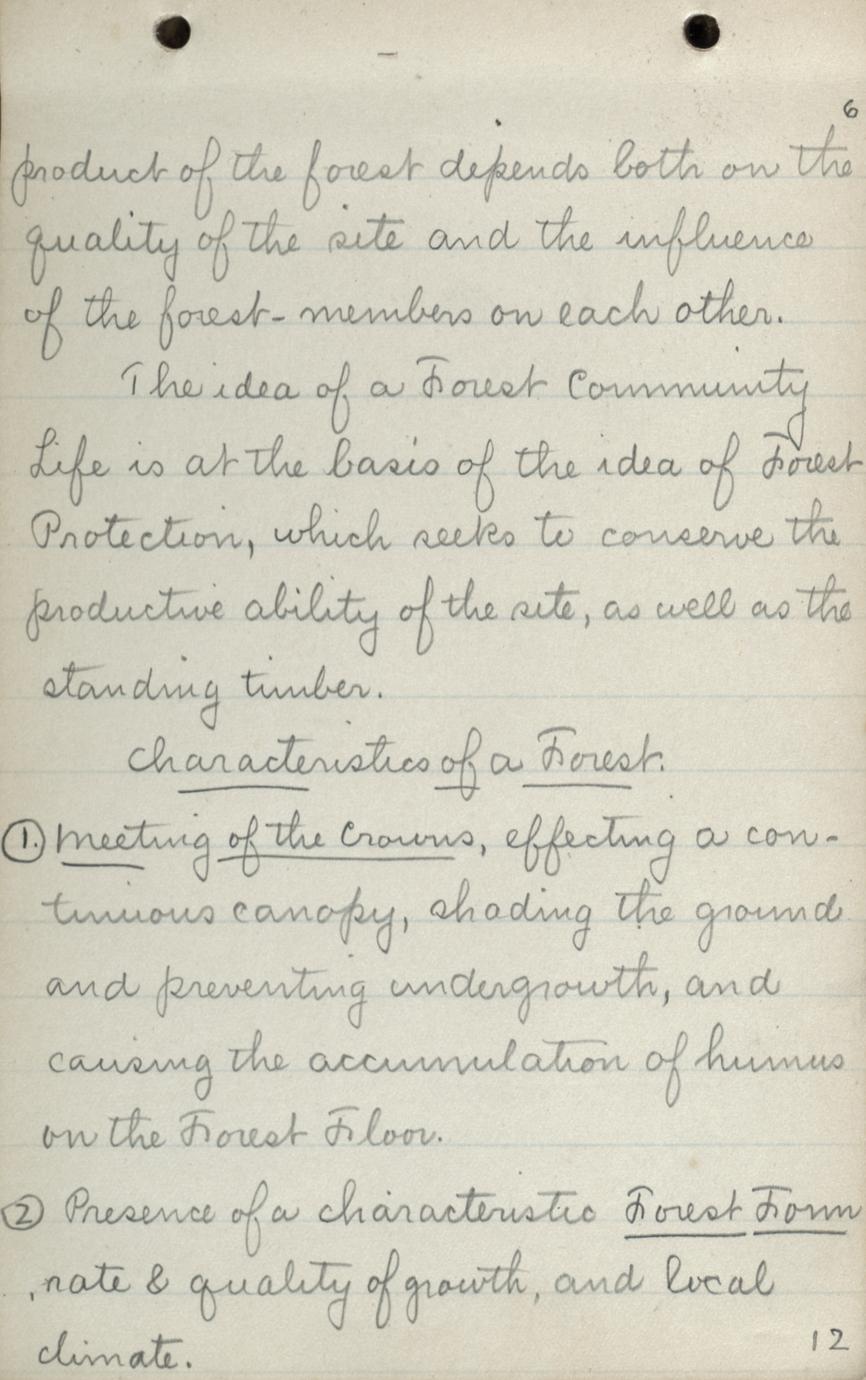 6
product of the forest depends both on the
quality of the site and the influence
of the forest-members on each other.
The idea of a Forest Community
Life is at the basis of the idea of Forest
Protection, which seeks to conserve the
productive ability of the site, as well as the
standing timber.
Characteristics of a Forest.
1. Meeting of the Crowns, effecting a con-
tinuous canopy, shading the ground
and preventing undergrowth, and
causing the accumulation of humus
on the Forest Floor.
2 Presence of a characteristic Forest Form
, rate & quality of growth, and local
climate.
12